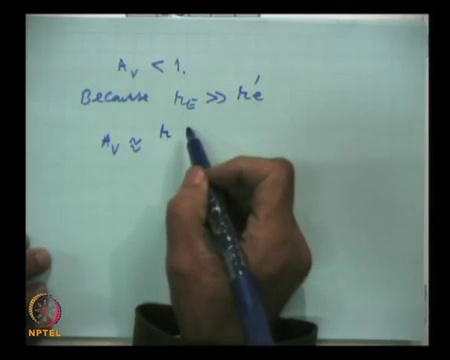 A_V < 1.
Because r_E >> r'e
A_V ≈ r
NPTEL